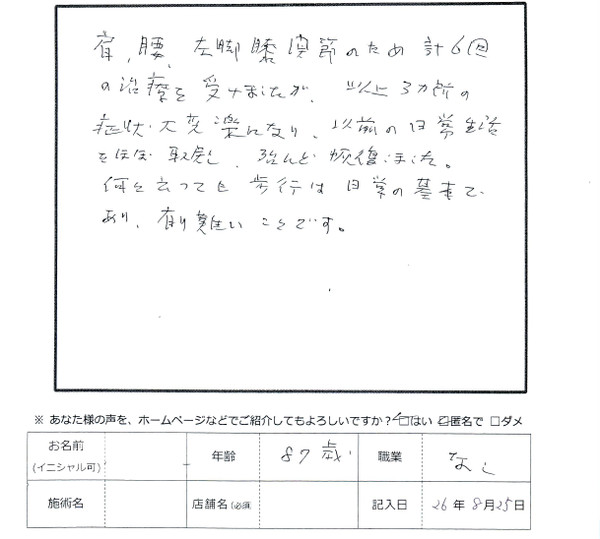 肩、腰、左脚膝関節のため 計6回
の治療を受けましたが、以上3カ所の
症状、大変楽になり、以前の日常生活
をほぼ取戻し、殆んど恢復しました。
何と云っても 歩行は 日常の基本で
あり、有り難いことです。
※ あなた様の声を、ホームページなどでご紹介してもよろしいですか？ □はい ☑匿名で □ダメ
お名前 (イニシャル可) 年齢 87歳 職業 なし
施術名 店舗名(必須 記入日 26年 8月25日